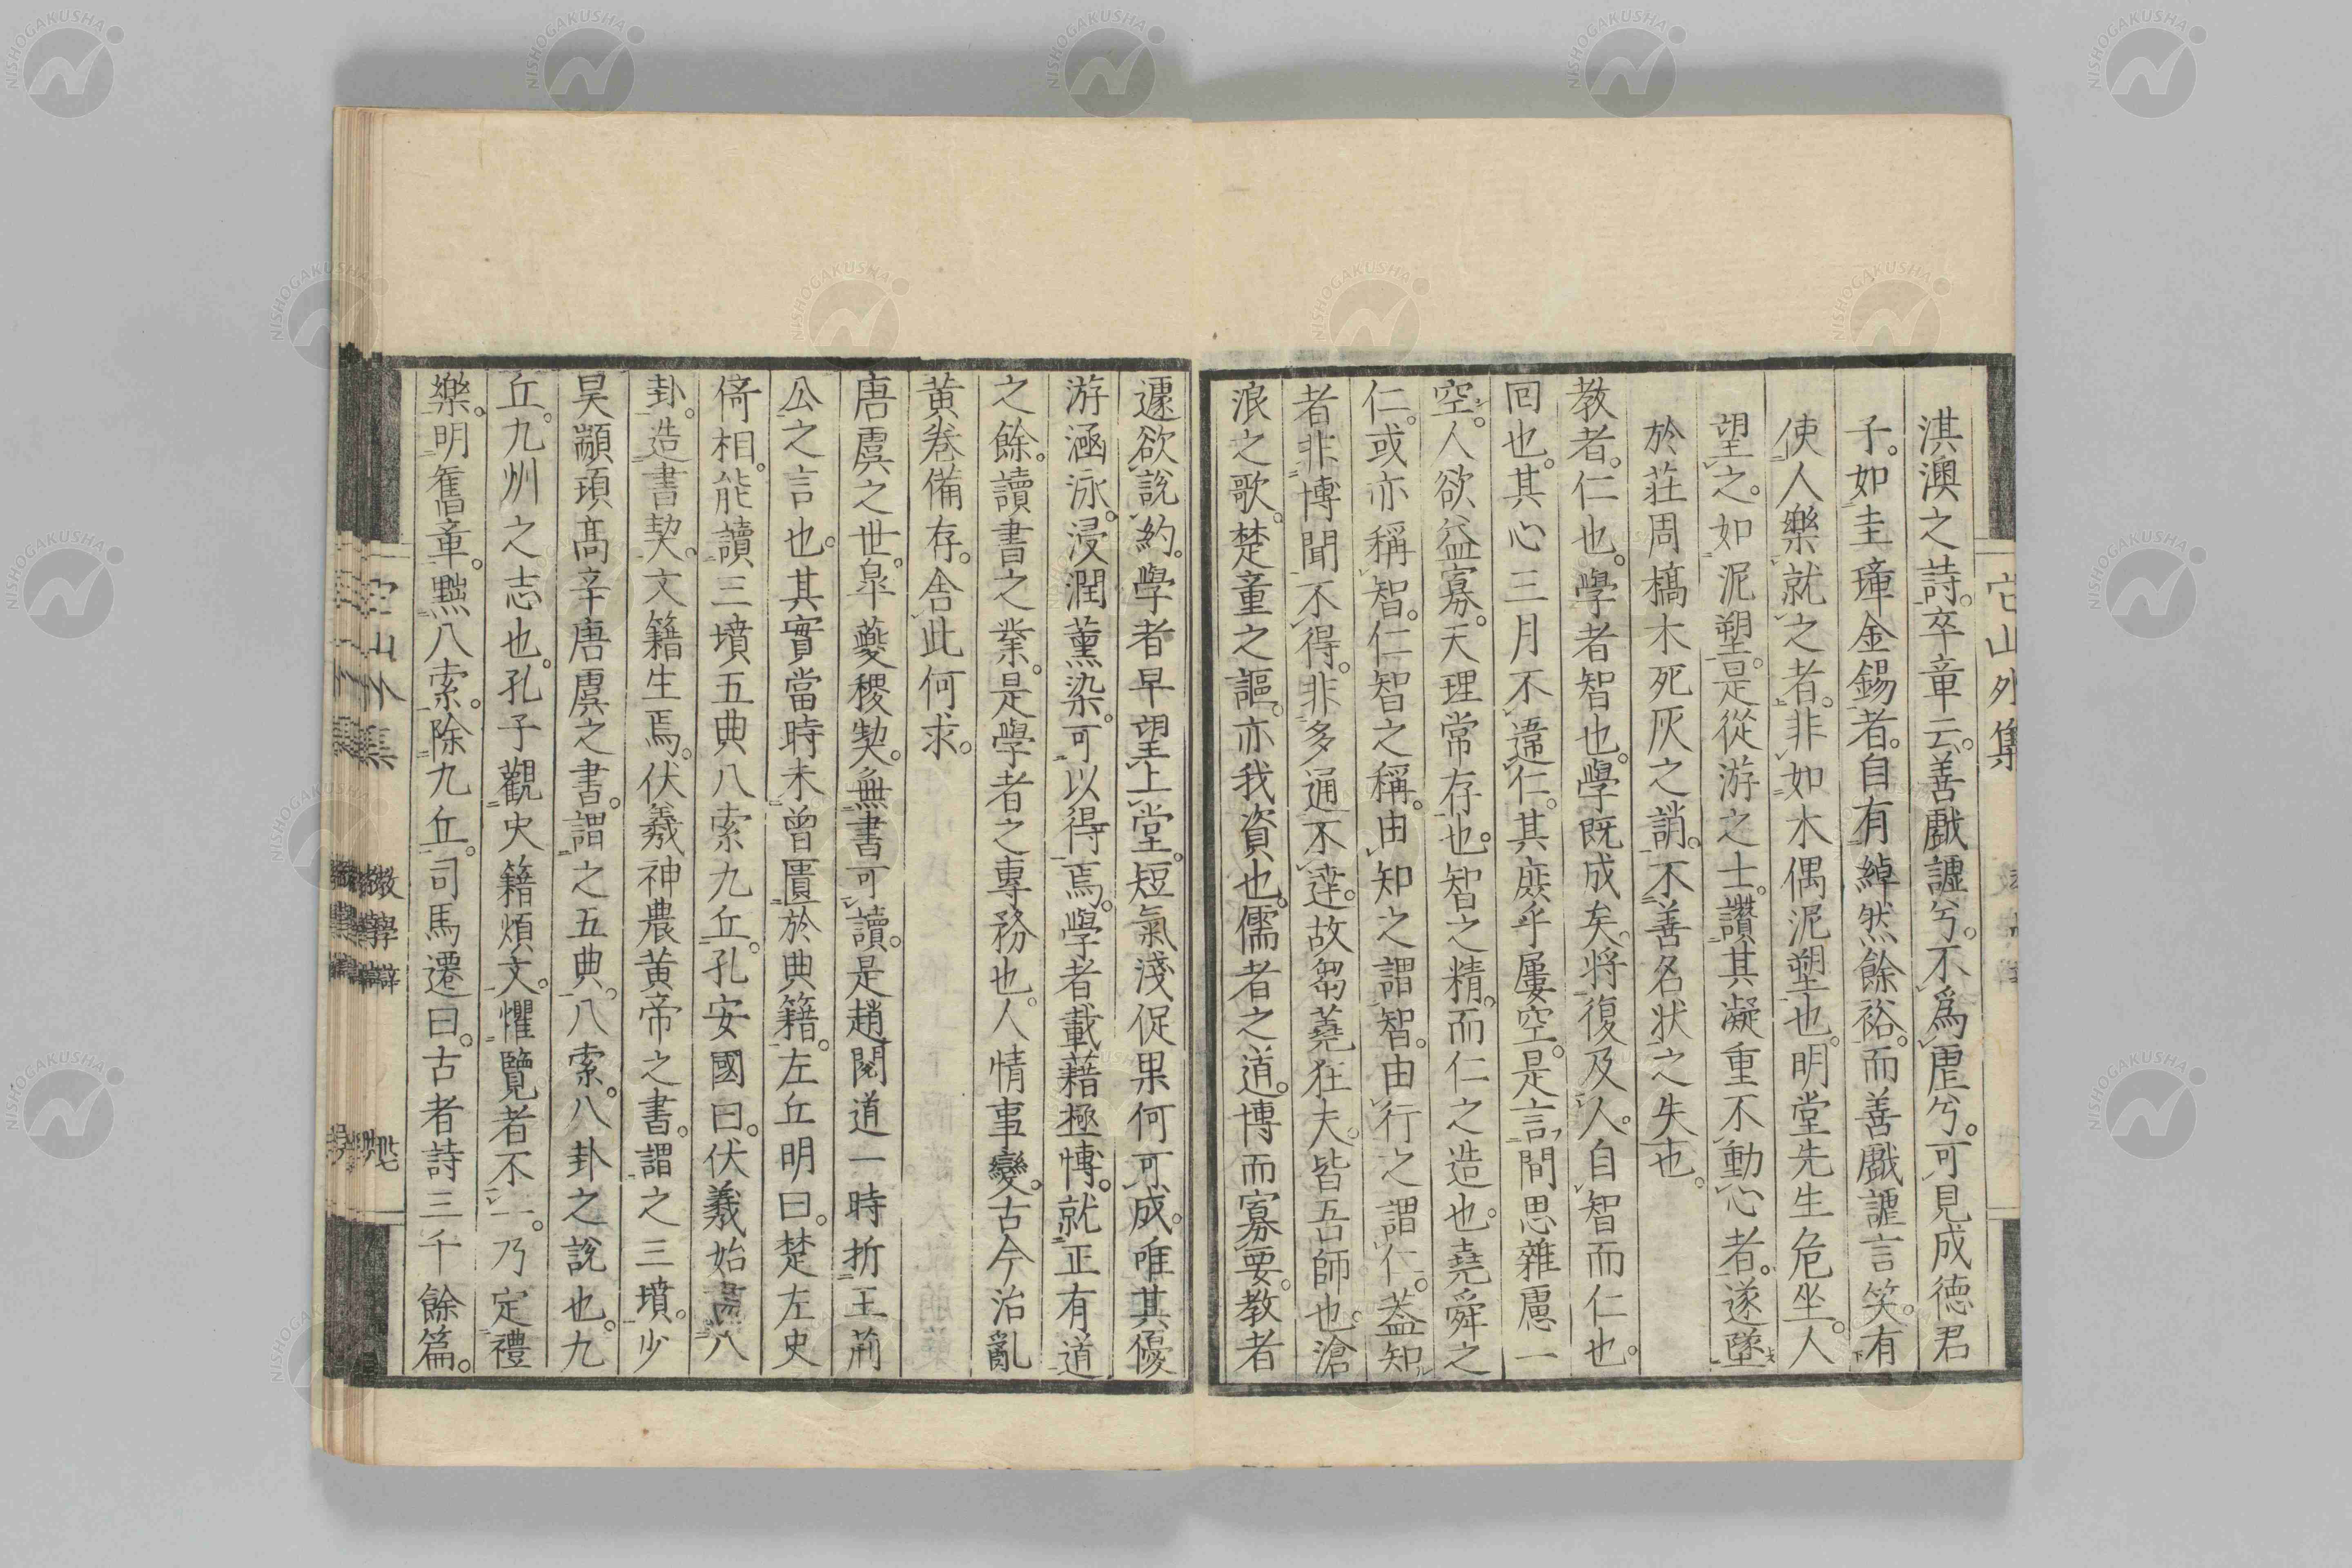 淇澳之詩。卒章云。善戲謔兮。不爲虐兮。可見成德君
子。如圭璋金錫者。自有綽然餘裕。而善戲謔言笑。有
使人樂就之者。非如木偶泥塑也。明堂先生危坐。人
望之。如泥塑。是從游之士。讚其凝重不動心者。遂墜
於莊周槁木死灰之誚。不善名状之失也。
教者。仁也。學者智也。學既成矣。將復及人。自智而仁也。
回也。其心三月不違仁。其庶乎屢空。是言間思雜慮一
空。人欲益寡。天理常存也。智之精。而仁之造也。堯舜之
仁。或亦稱智。仁智之稱。由知之謂智。由行之謂仁。蓋知
者非博聞不得。非多通不達。故芻蕘狂夫。皆吾師也。滄
浪之歌。楚童之謳。亦我資也。儒者之道。博而寡要。教者
遽欲說約。學者早望上堂。短氣淺促果何可成。唯其優
游涵泳。浸潤薰染。可以得焉。學者載藉極博。就正有道
之餘。讀書之業。是學者之專務也。人情事變。古今治亂
黄卷備存。舎此何求。
唐虞之世。皐夔稷契。無書可讀。是趙閱道一時折王荊
公之言也。其實當時未曾匱於典籍。左丘明曰。楚左史
倚相。能讀三墳五典八索九丘。孔安國曰。伏羲始畵八
卦。造書契。文籍生焉。伏羲神農黄帝之書。謂之三墳。少
昊顓頊髙辛唐虞之書。謂之五典。八索。八卦之說也。九
丘。九州之志也。孔子觀史籍煩文。懼覽者不一。乃定禮
樂。明舊章。黜八索。除九丘。司馬遷曰。古者詩三千餘篇。
它山外集
教學辯
NISHOGAKUSHA